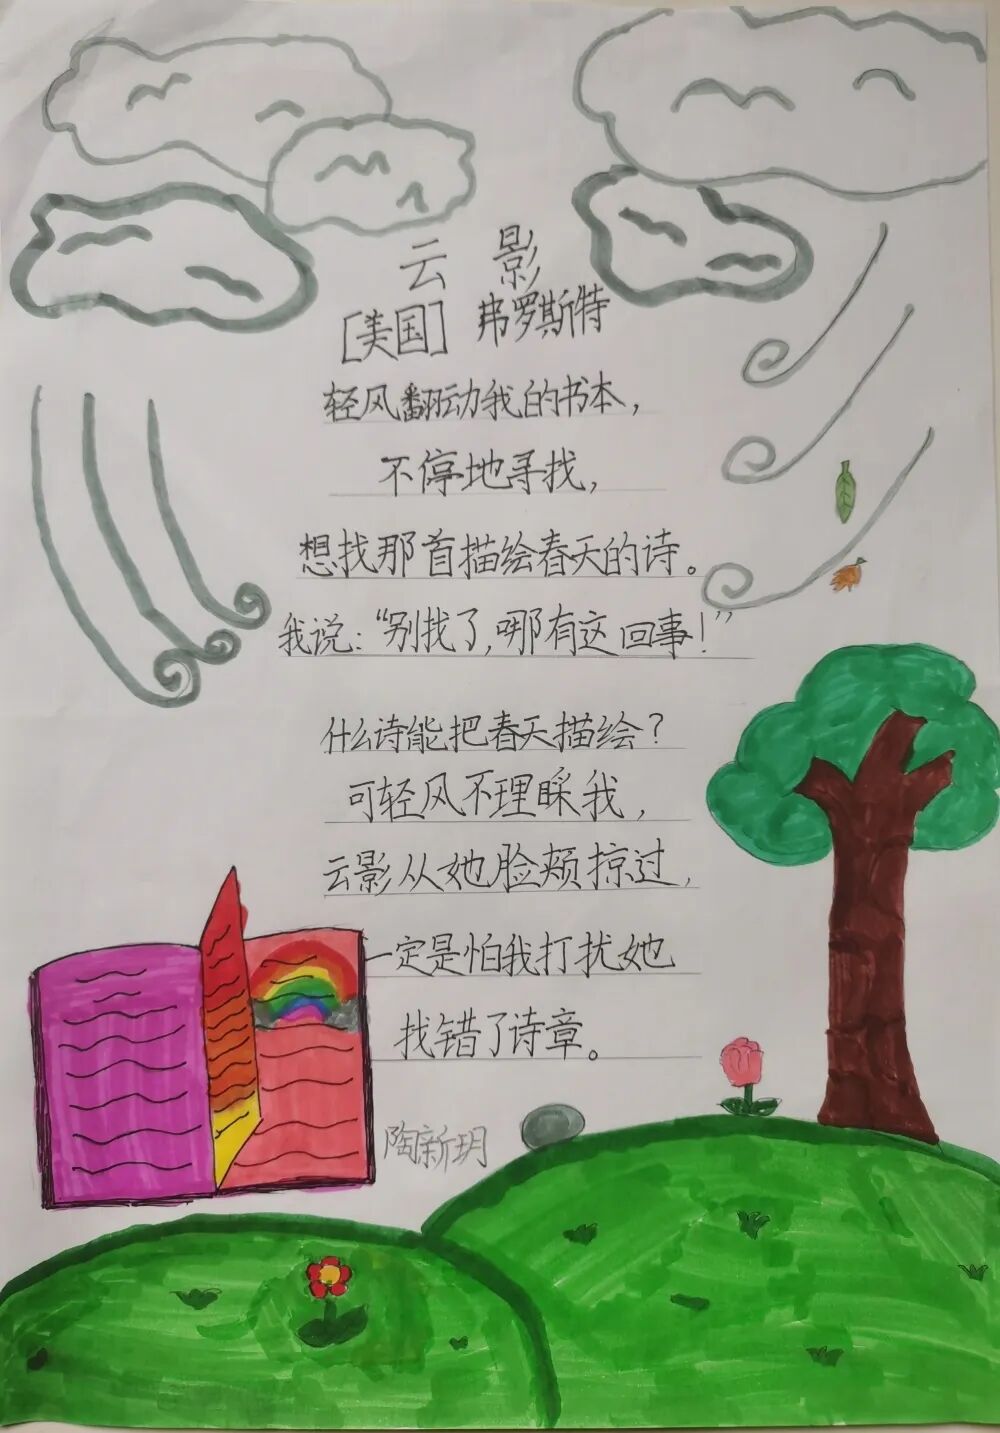 云 影
[美国] 弗罗斯特
轻风翻动我的书本，
不停地寻找，
想找那首描绘春天的诗。
我说：“别找了，哪有这回事！”
什么诗能把春天描绘？
可轻风不理睬我，
云影从她脸颊掠过，
一定是怕我打扰她
找错了诗章。
陶新玥